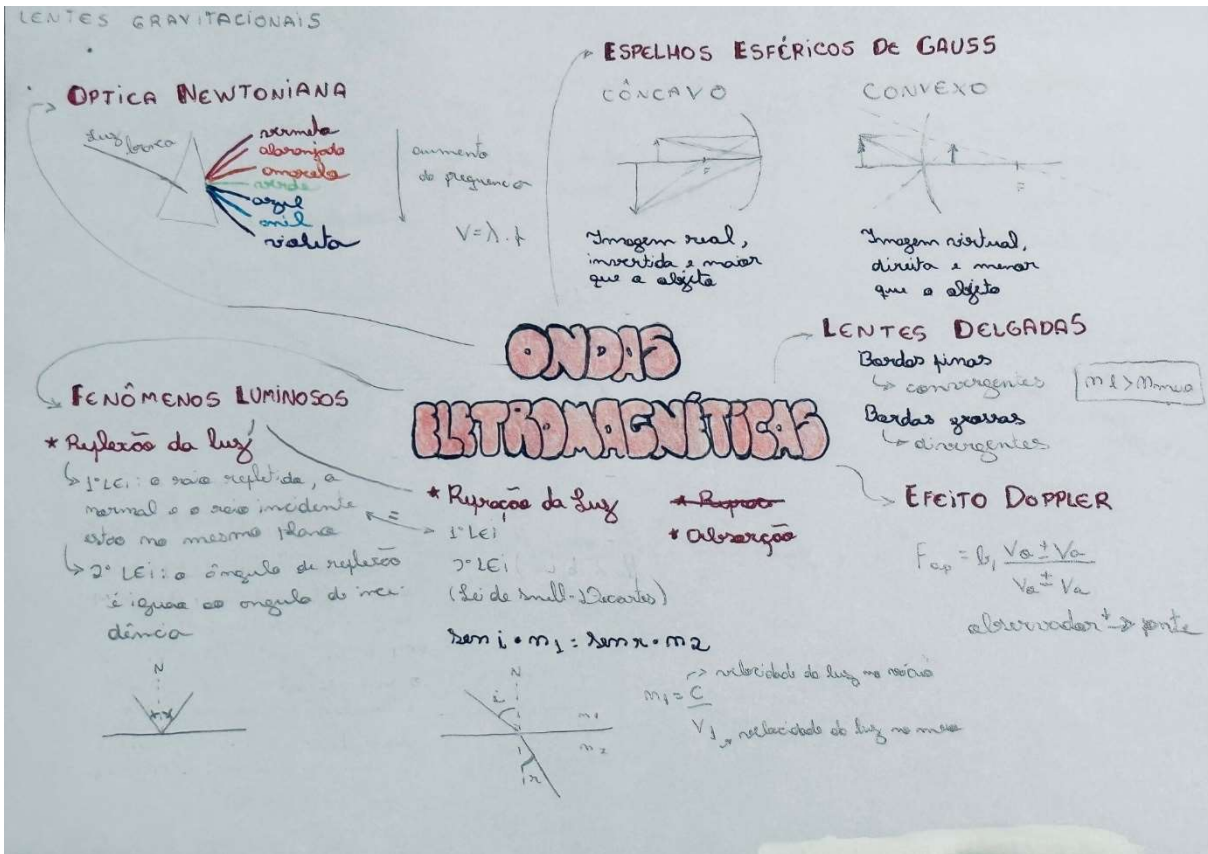 LENTES GRAVITACIONAIS
OPTICA NEWTONIANA
Luz branca
vermelho
alaranjado
amarelo
verde
azul
anil
violeta
aumento
da frequencia
V = λ . f
ESPELHOS ESFÉRICOS DE GAUSS
CÔNCAVO
F
Imagem real,
invertida e maior
que o objeto
CONVEXO
F
Imagem virtual,
direita e menor
que o objeto
ONDAS
ELETROMAGNÉTICAS
LENTES DELGADAS
Bordas finas
convergentes
Bordas grossas
divergentes
nl > nmeio
FENÔMENOS LUMINOSOS
* Reflexão da luz
1ª LEi: o raio refletido, a
normal e o raio incidente
estão no mesmo plano
2ª LEi: o ângulo de reflexão
é igual ao ângulo de inci-
dência
N
i r
* Refração da Luz
=
1ª LEi
2ª LEi
(Lei de Snell-Decartes)
sen i • n1 = sen r • n2
N
i
n1
n2
r
* Absorção
n1 = C
velocidade da luz no vácuo
V1
velocidade da luz no meio
EFEITO DOPPLER
Fap =
Vo ± Vo
Vo ± Vo
observador + -> fonte